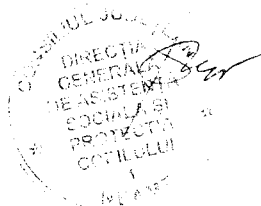 CONSILIUL JUDEȚEAN
DIRECȚIA
GENERALĂ
DE ASISTENȚĂ
SOCIALĂ ȘI
PROTECȚIA
COPILULUI
1
NEAMȚ